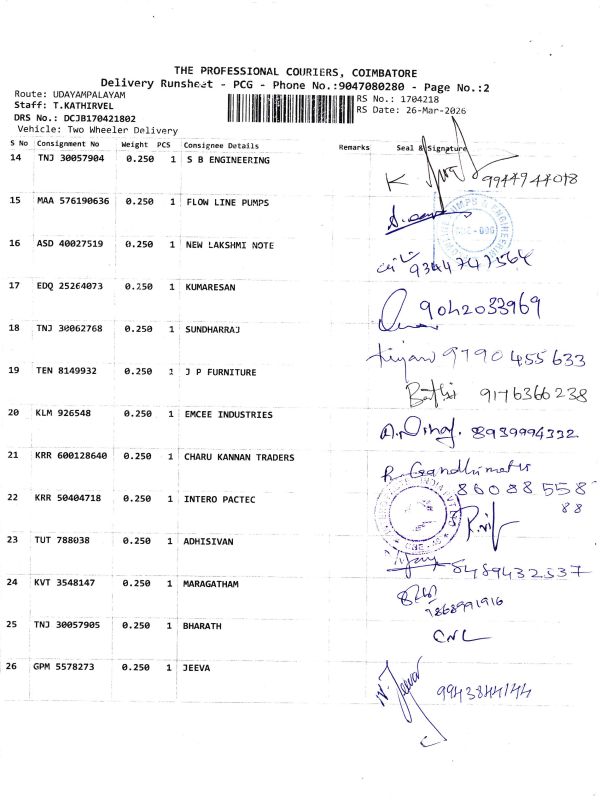 THE PROFESSIONAL COURIERS, COIMBATORE
Delivery Runsheet - PCG - Phone No.:9047080280 - Page No.:2
Route: UDAYAMPALAYAM
Staff: T.KATHIRVEL
DRS No.: DCJB170421802
Vehicle: Two Wheeler Delivery
RS No.: 1704218
RS Date: 26-Mar-2026
S No Consignment No Weight PCS Consignee Details Remarks Seal & Signature
14 TNJ 30057904 0.250 1 S B ENGINEERING 9944944078
15 MAA 576190636 0.250 1 FLOW LINE PUMPS
16 ASD 40027519 0.250 1 NEW LAKSHMI NOTE 9344747564
17 EDQ 25264073 0.250 1 KUMARESAN 9042033969
18 TNJ 30062768 0.250 1 SUNDHARRAJ 9790 455 633
19 TEN 8149932 0.250 1 J P FURNITURE 9176366238
20 KLM 926548 0.250 1 EMCEE INDUSTRIES 8939994332
21 KRR 600128640 0.250 1 CHARU KANNAN TRADERS 86088558
88
22 KRR 50404718 0.250 1 INTERO PACTEC
23 TUT 788038 0.250 1 ADHISIVAN 8489432537
24 KVT 3548147 0.250 1 MARAGATHAM
25 TNJ 30057905 0.250 1 BHARATH CNL
26 GPM 5578273 0.250 1 JEEVA 9943844144